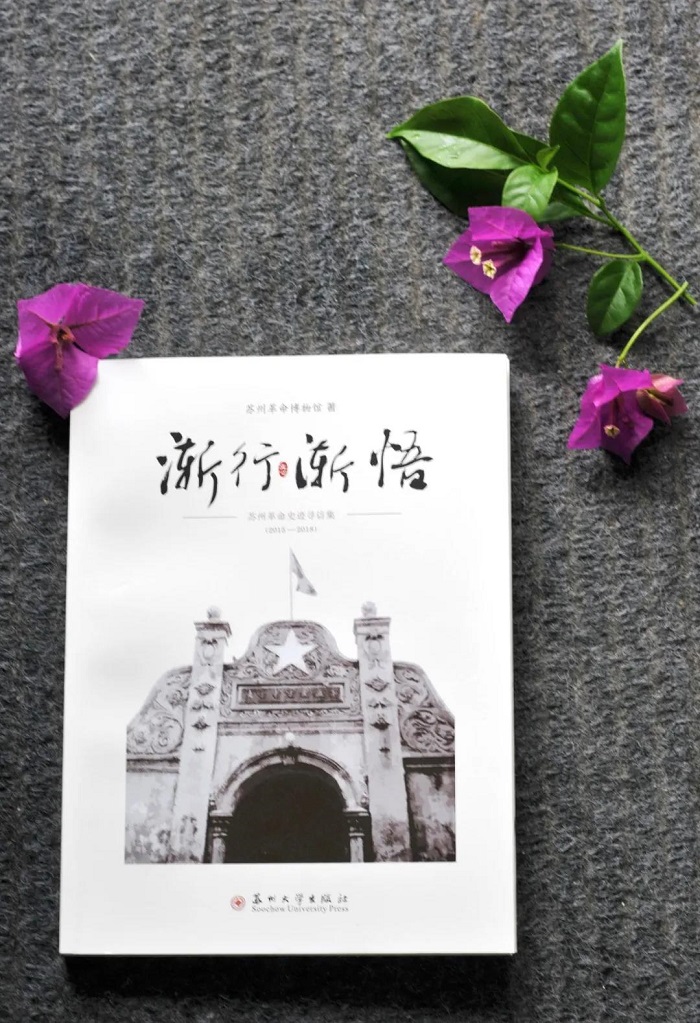 苏州革命博物馆 著
渐行渐悟
苏州革命史迹寻访集
(2015—2018)
苏州大学出版社
Soochow University Press